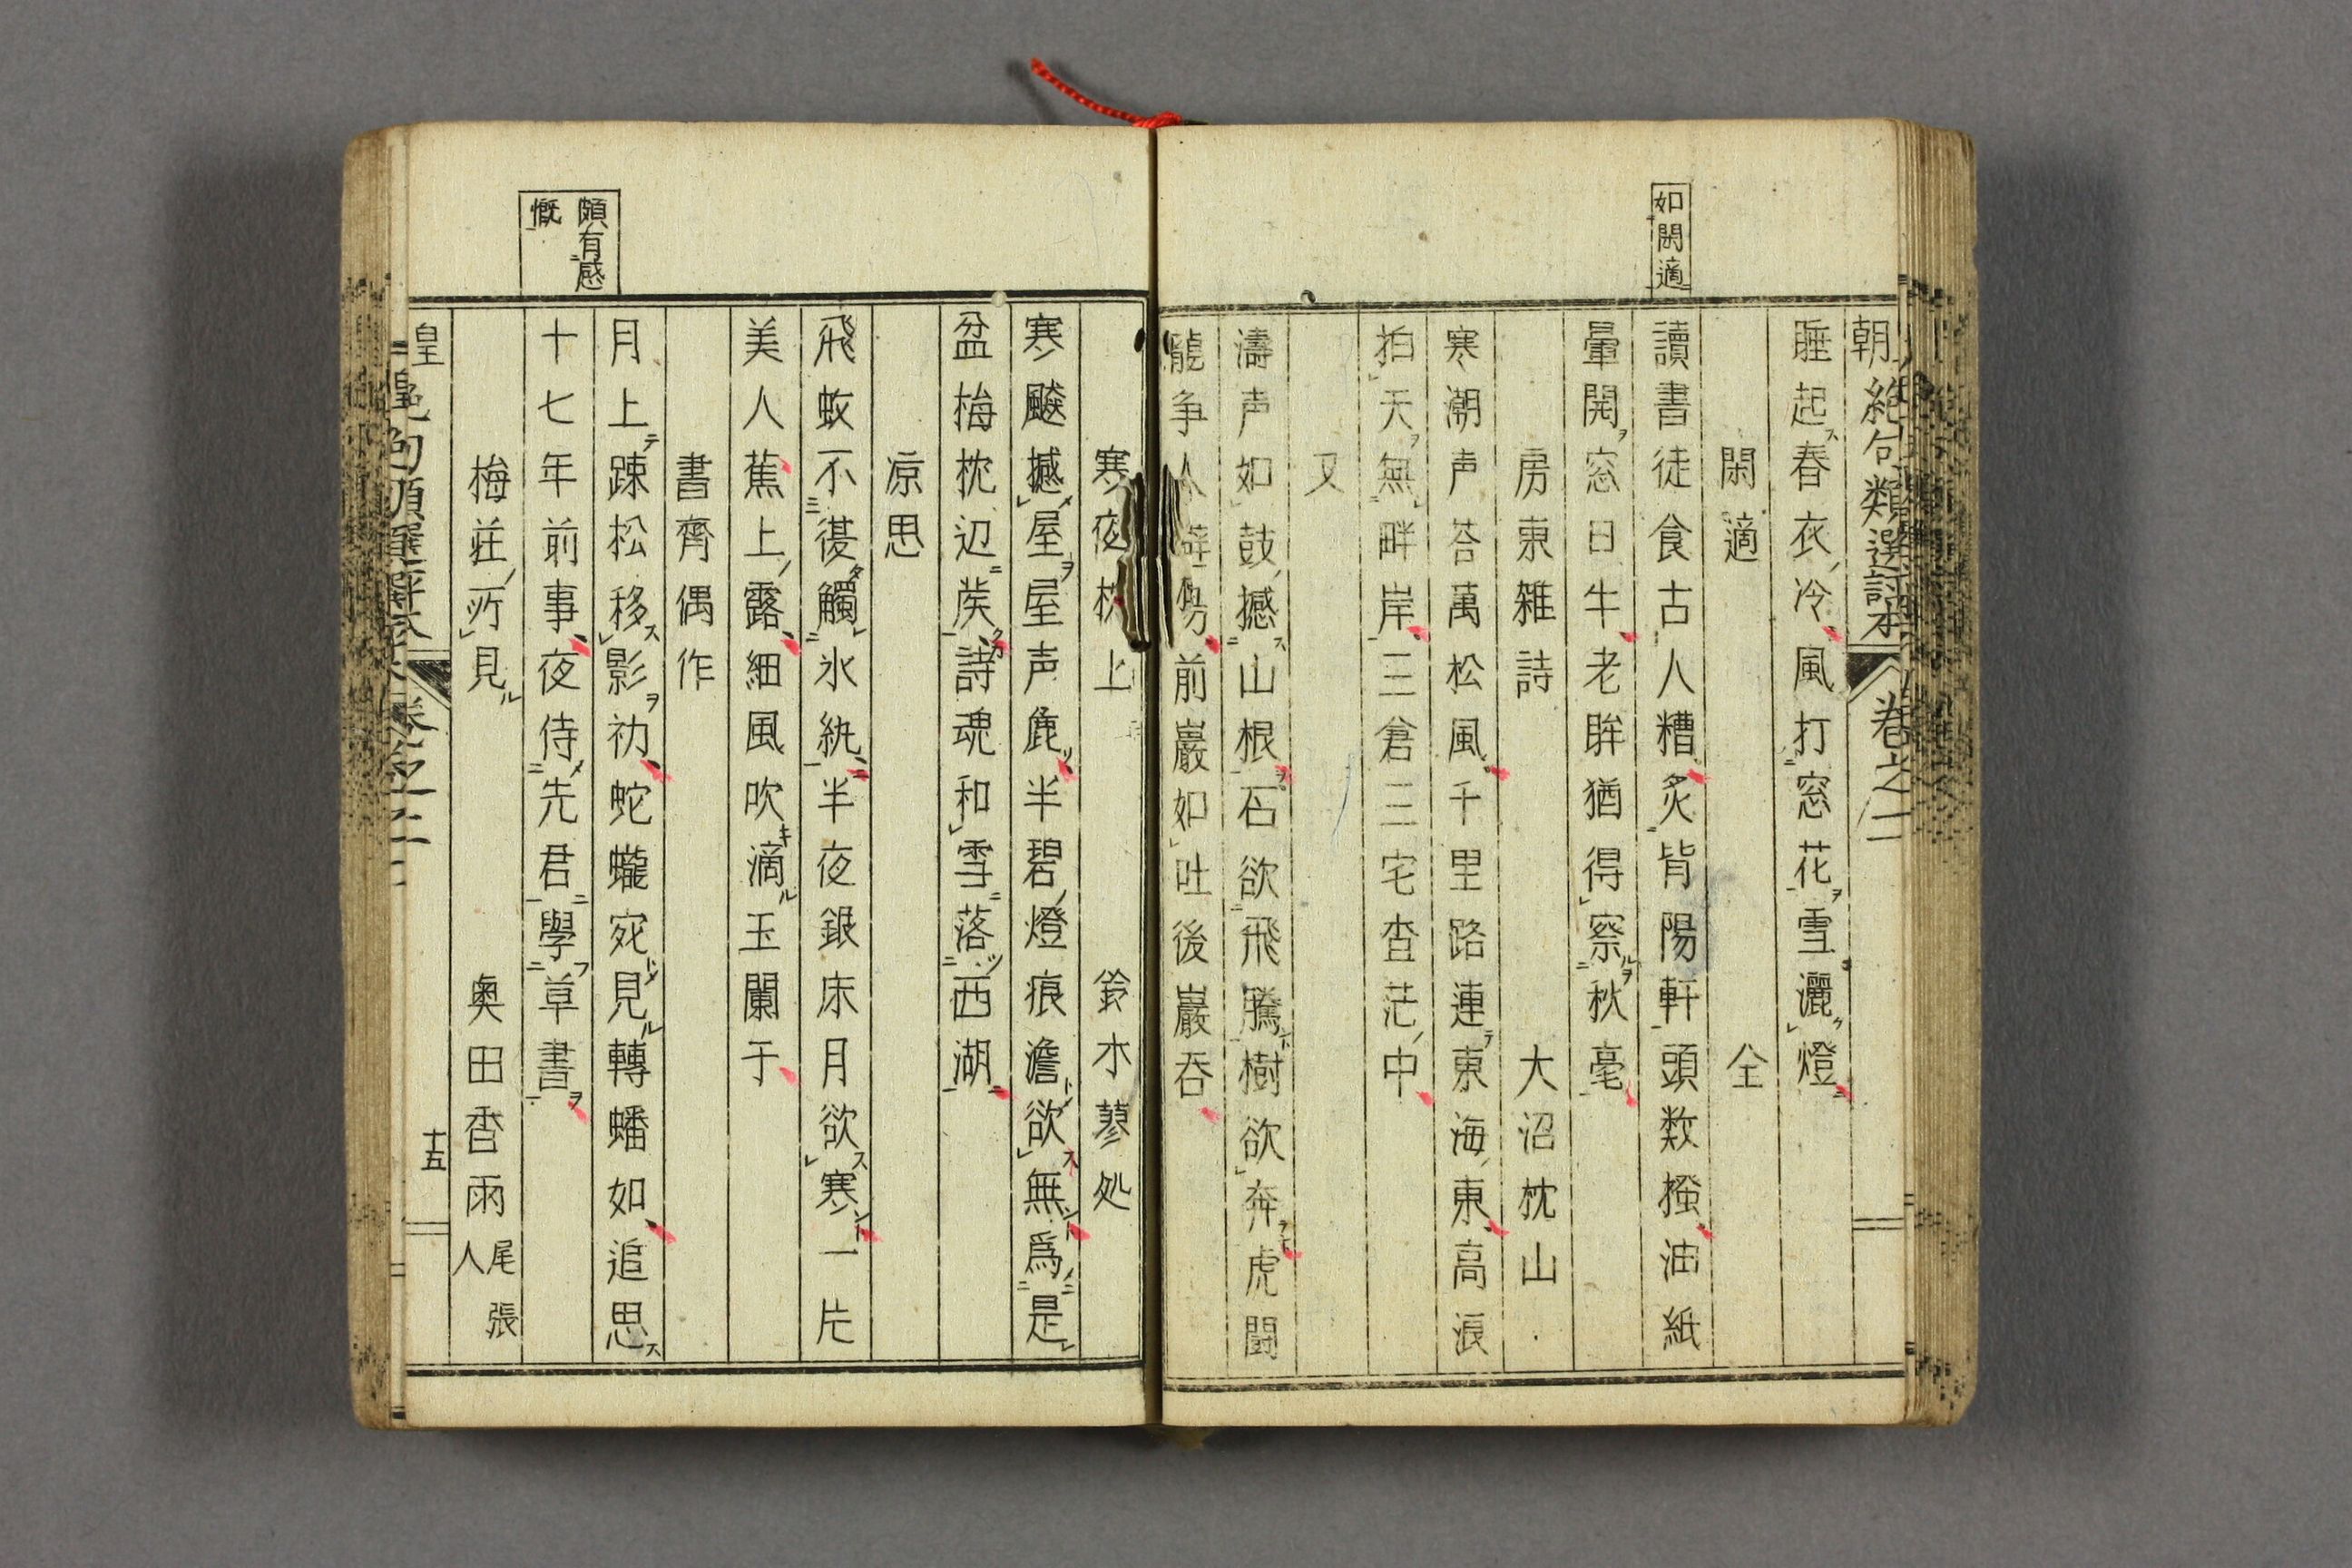 如閑適
朝絶句類選評本 卷之二
睡起春衣冷風打窓花雪灑燈
閑適 仝
讀書徒食古人糟炙背陽軒頭数撥油紙
暈開窓日牛老眸猶得察秋毫
房東雜詩 大沼枕山
寒潮声荅萬松風千里路連東海東高浪
拍天無畔岸三倉三宅杳茫中
又
濤声如鼓撼山根石欲飛騰樹欲奔虎闘
龍争人辟易前巖如吐後巖吞
寒夜枕上 鈴木蓼処
寒飈撼屋屋声麁半碧燈痕澹欲無爲是
盆梅枕辺蔟詩魂和雪落西湖
凉思
飛蚊不復觸氷紈半夜銀床月欲寒一片
美人蕉上露細風吹滴玉闌干
書齊偶作
頗有感慨
月上踈松移影初蛇蠬宛見轉蟠如追思
十七年前事夜侍先君學草書
梅莊所見 奥田香雨 尾張人
皇 十五